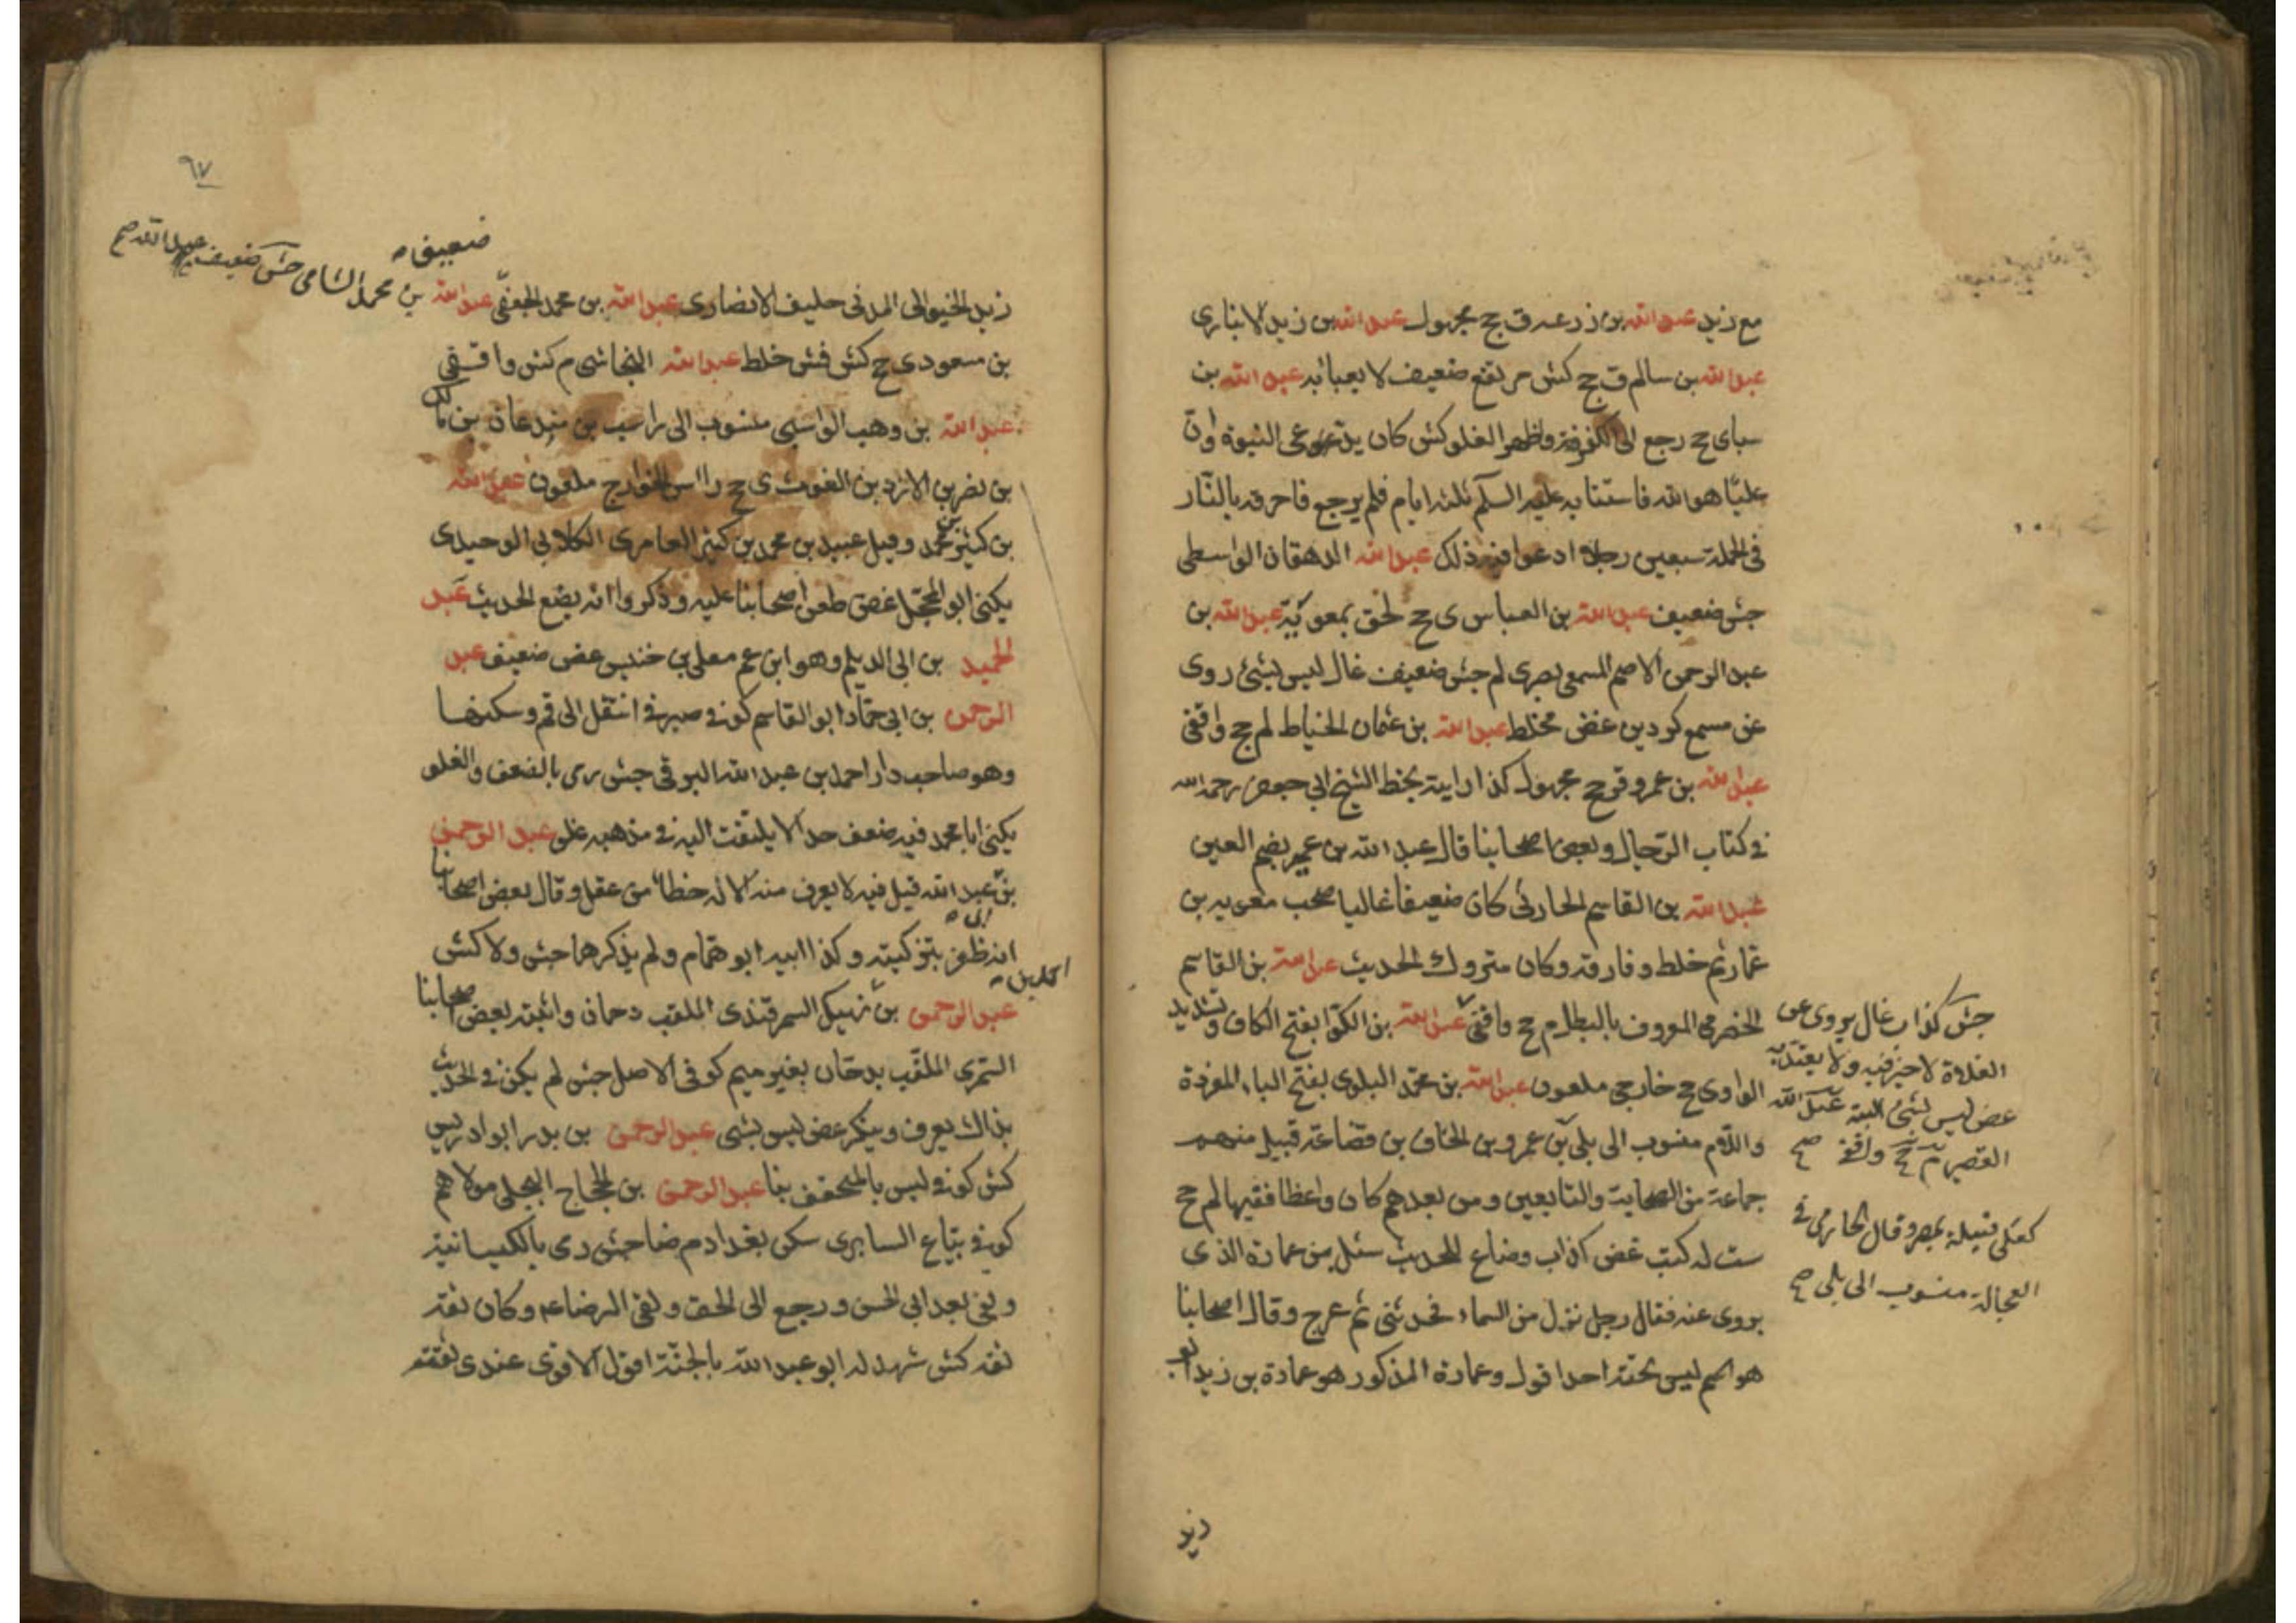 مع زيد عبد الله بن زرعه ق ج مجهول عبد الله بن زيد الانبارى
عبد الله بن سالم ق ج كش مرتفع ضعيف لا يعبا به عبد الله بن
سبا ى ج رجع الى الكفر واظهر الغلو كش كان يدعى النبوة وان
عليّا هو الله فاستتابه عليه السلم ثلثه ايام فلم يرجع فاحرقه بالنّار
فى جملة سبعين رجلا ادعوا فيه ذلك عبد الله الدهقان الواسطى
جش ضعيف عبد الله بن العباس ى ج لحق بمعوية عبد الله بن
عبد الرحمن الاصم المسمعى بصرى لم جش ضعيف غال ليس بشئ روى
عن مسمع كردين غض مخلط عبد الله بن عثمان الخياط لم ج واقفى
عبد الله بن عمرو قر ج مجهول كذا رايته بخط الشيخ ابى جعفر رحمه الله
فى كتاب الرّجال وبعض اصحابنا قال عبد الله بن عمير بضم العين
عبد الله بن القاسم الحارثى كان ضعيفا غاليا صحب معويه بن
عمار ثم خلط وفارقه وكان متروك الحديث عبد الله بن القاسم
الحضرمى المعروف بالبطل م ج واقفى عبد الله بن الكوّا بفتح الكاف وتشديد
الواو ى ج خارجى ملعون عبد الله بن محمّد البلوى بفتح الباء المفردة
واللام منسوب الى بلى بن عمرو بن الحاف بن قضاعة قبيل منهم
جماعة من الصحابة والتابعين ومن بعدهم كان واعظا فقيها لم ج
ست له كتب غض كذاب وضاع للحديث سئل من عمارة الذى
يروى عنه فقال رجل نزل من السماء فحدثنى ثم عرج وقال اصحابنا
هو اسم ليس تحته احد اقول وعمارة المذكور هو عمارة بن زيد ابو
جش كذاب غال يروى عن
الغلاة لا خير فيه ولا يعتد به
غض ليس بشئ البتة عبد الله
القصير م ج واقفى صح
كعلى قبيلة بمصر وقال الحازمى فى
العجالة منسوب الى بلى صح
زيد
٩٧
ضعيف
زيد الخيوانى المدنى حليف الانصارى عبد الله بن محمد الجعفى عبد الله بن محمد الشامى جش ضعيف عبد الله صح
بن مسعود ى ج كش فش خلط عبد الله النجاشى م كش واقفى
عبد الله بن وهب الراسبى منسوب الى راسب بن ميدعان بن مالك
بن نصر بن الازد بن الغوث ى ج راس الخوارج ملعون عبد الله
بن كثير بن محمد وقيل عبيد بن محمد بن كثير العامرى الكلابى الوحيدى
يكنى ابو المحجّل غض طعن اصحابنا عليه وذكروا انه يضع الحديث عبد
الحميد بن ابى الديلم وهو ابن عم معلى بن خنيس غض ضعيف عبد
الرحمن بن ابى حمّاد ابو القاسم كوفى صيرفى انتقل الى قم وسكنها
وهو صاحب دار احمد بن عبد الله البرقى جش رمى بالضعف والغلو
يكنى ابا محمد فيه ضعف جدا لا يلتفت اليه فى مذهبه غلو عبد الرحمن
بن عبد الله قيل فيه لا يعرف منه الا انه خطا من عقل وقال بعض اصحابنا
انه ظفر بتزكيته وكذا ابيه ابو همام ولم يذكرهما جش ولا كش
عبد الرحمن بن نهيك السمرقندى الملقب دحمان واثبته بعض اصحابنا
التمرى الملقّب بدحّان بغير ميم كوفى الاصل جش لم يكن فى الحديث
بذاك يعرف وينكر غض ليس بشى عبد الرحمن بن بدر ابو ادريس
كش كوفى ليس بالمتحقق بنا عبد الرحمن بن الحجاج البجلى مولاهم
كوفى بيّاع السابرى سكن بغداد م ضا جش رمى بالكيسانية
وبقى بعد ابى الحسن ورجع الى الحق ولقى الرضاء وكان ثقة
ثقة كش شهد له ابو عبد الله بالجنّة اقول الاقوى عندى ثقته